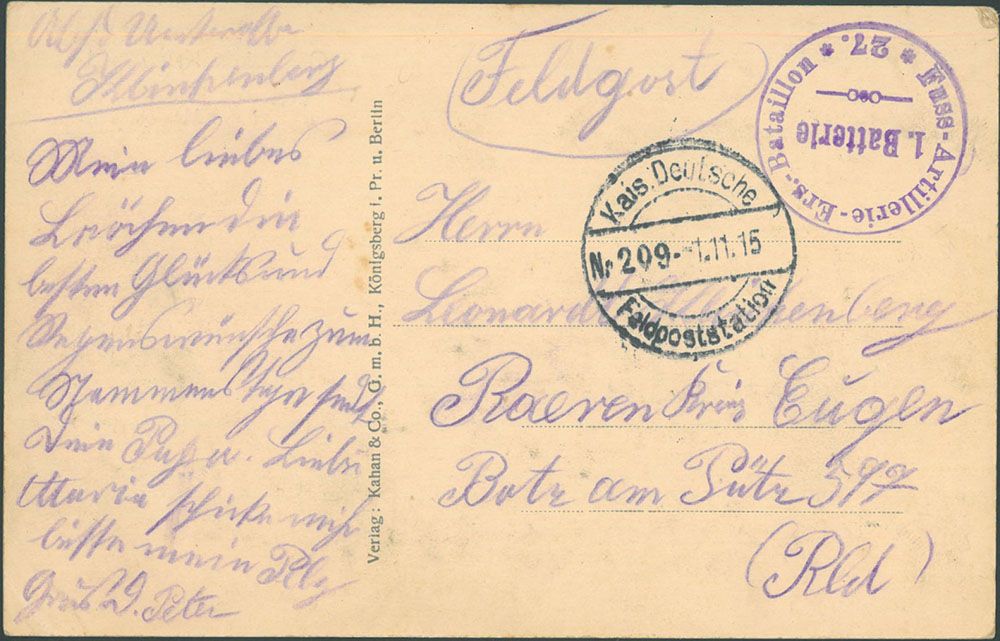 Abs. Unterofz.
Klinkenberg
Mein liebes
Lenchen die
besten Glücks und
Segenswünsche zum
Namenstage sendt
Dein Papa. Liebe
Maria schicke mir
bitte mein Pelz
Grus D. Peter
Verlag: Kahan & Co., G. m. b. H., Königsberg i. Pr. u. Berlin
Feldpost
Herrn
Leonard Klinkenberg
Raeren Kreis Eupen
Botz am Pütz 577
(Rld)
Kais. Deutsche
Nr 209 - 1.11.15
Feldpoststation
Fuss-Artillerie-Ers.-Bataillon * 27. *
1. Batterie